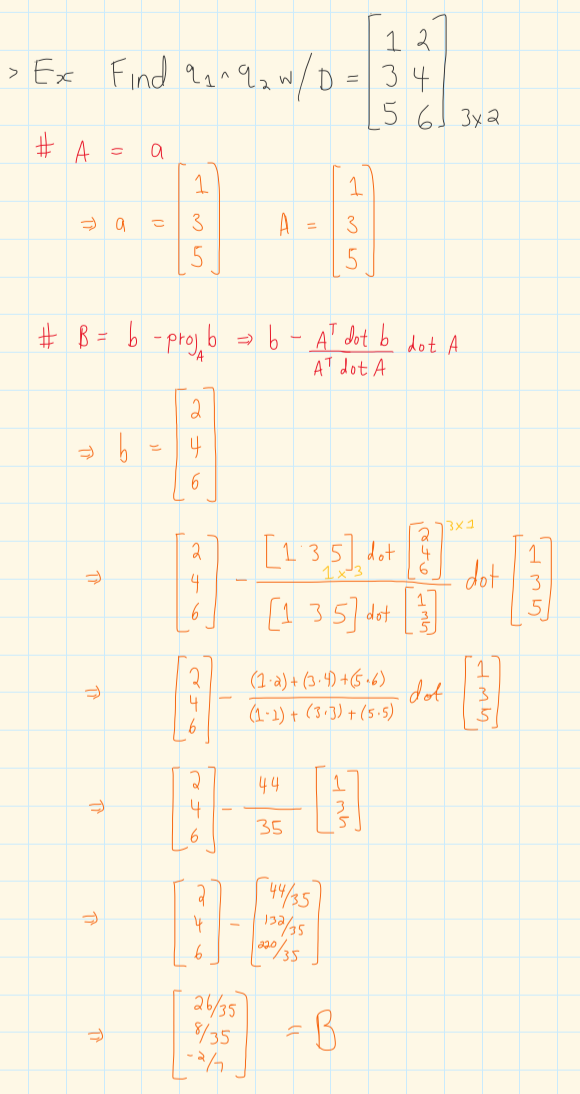 > Ex Find q₁ ∧ q₂ w/ D = [1 2; 3 4; 5 6] 3x2
# A = a
⇒ a = [1; 3; 5] A = [1; 3; 5]
# B = b - proj_A b ⇒ b - (Aᵀ dot b)/(Aᵀ dot A) dot A
⇒ b = [2; 4; 6]
⇒ [2; 4; 6] - ([1 3 5] 1x3 dot [2; 4; 6] 3x1)/([1 3 5] dot [1; 3; 5]) dot [1; 3; 5]
⇒ [2; 4; 6] - ((1·2)+(3·4)+(5·6))/((1·1)+(3·3)+(5·5)) dot [1; 3; 5]
⇒ [2; 4; 6] - 44/35 [1; 3; 5]
⇒ [2; 4; 6] - [44/35; 132/35; 220/35]
⇒ [26/35; 8/35; -2/7] = B